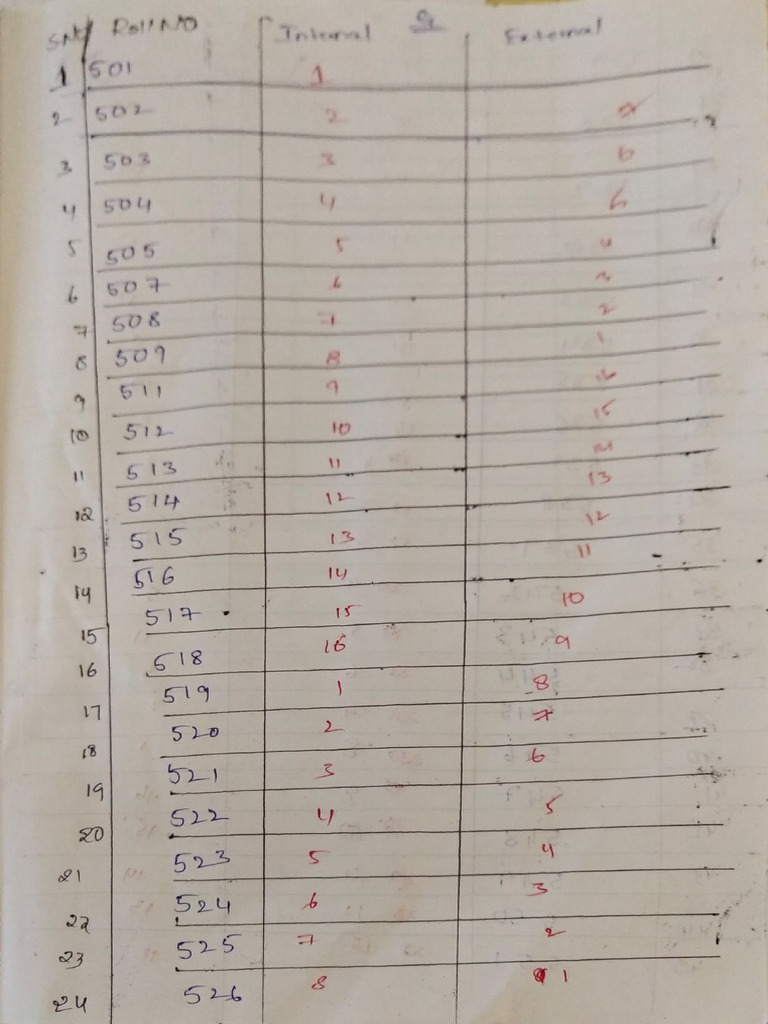 SNo Roll NO Internal Q External
1 501 1
2 502 2 7
3 503 3 6
4 504 4 5
5 505 5 4
6 507 6 3
7 508 7 2
8 509 8 1
9 511 9 16
10 512 10 15
11 513 11 14
12 514 12 13
13 515 13 12
14 516 14 11
15 517 15 10
16 518 16 9
17 519 1 8
18 520 2 7
19 521 3 6
20 522 4 5
21 523 5 4
22 524 6 3
23 525 7 2
24 526 8 1